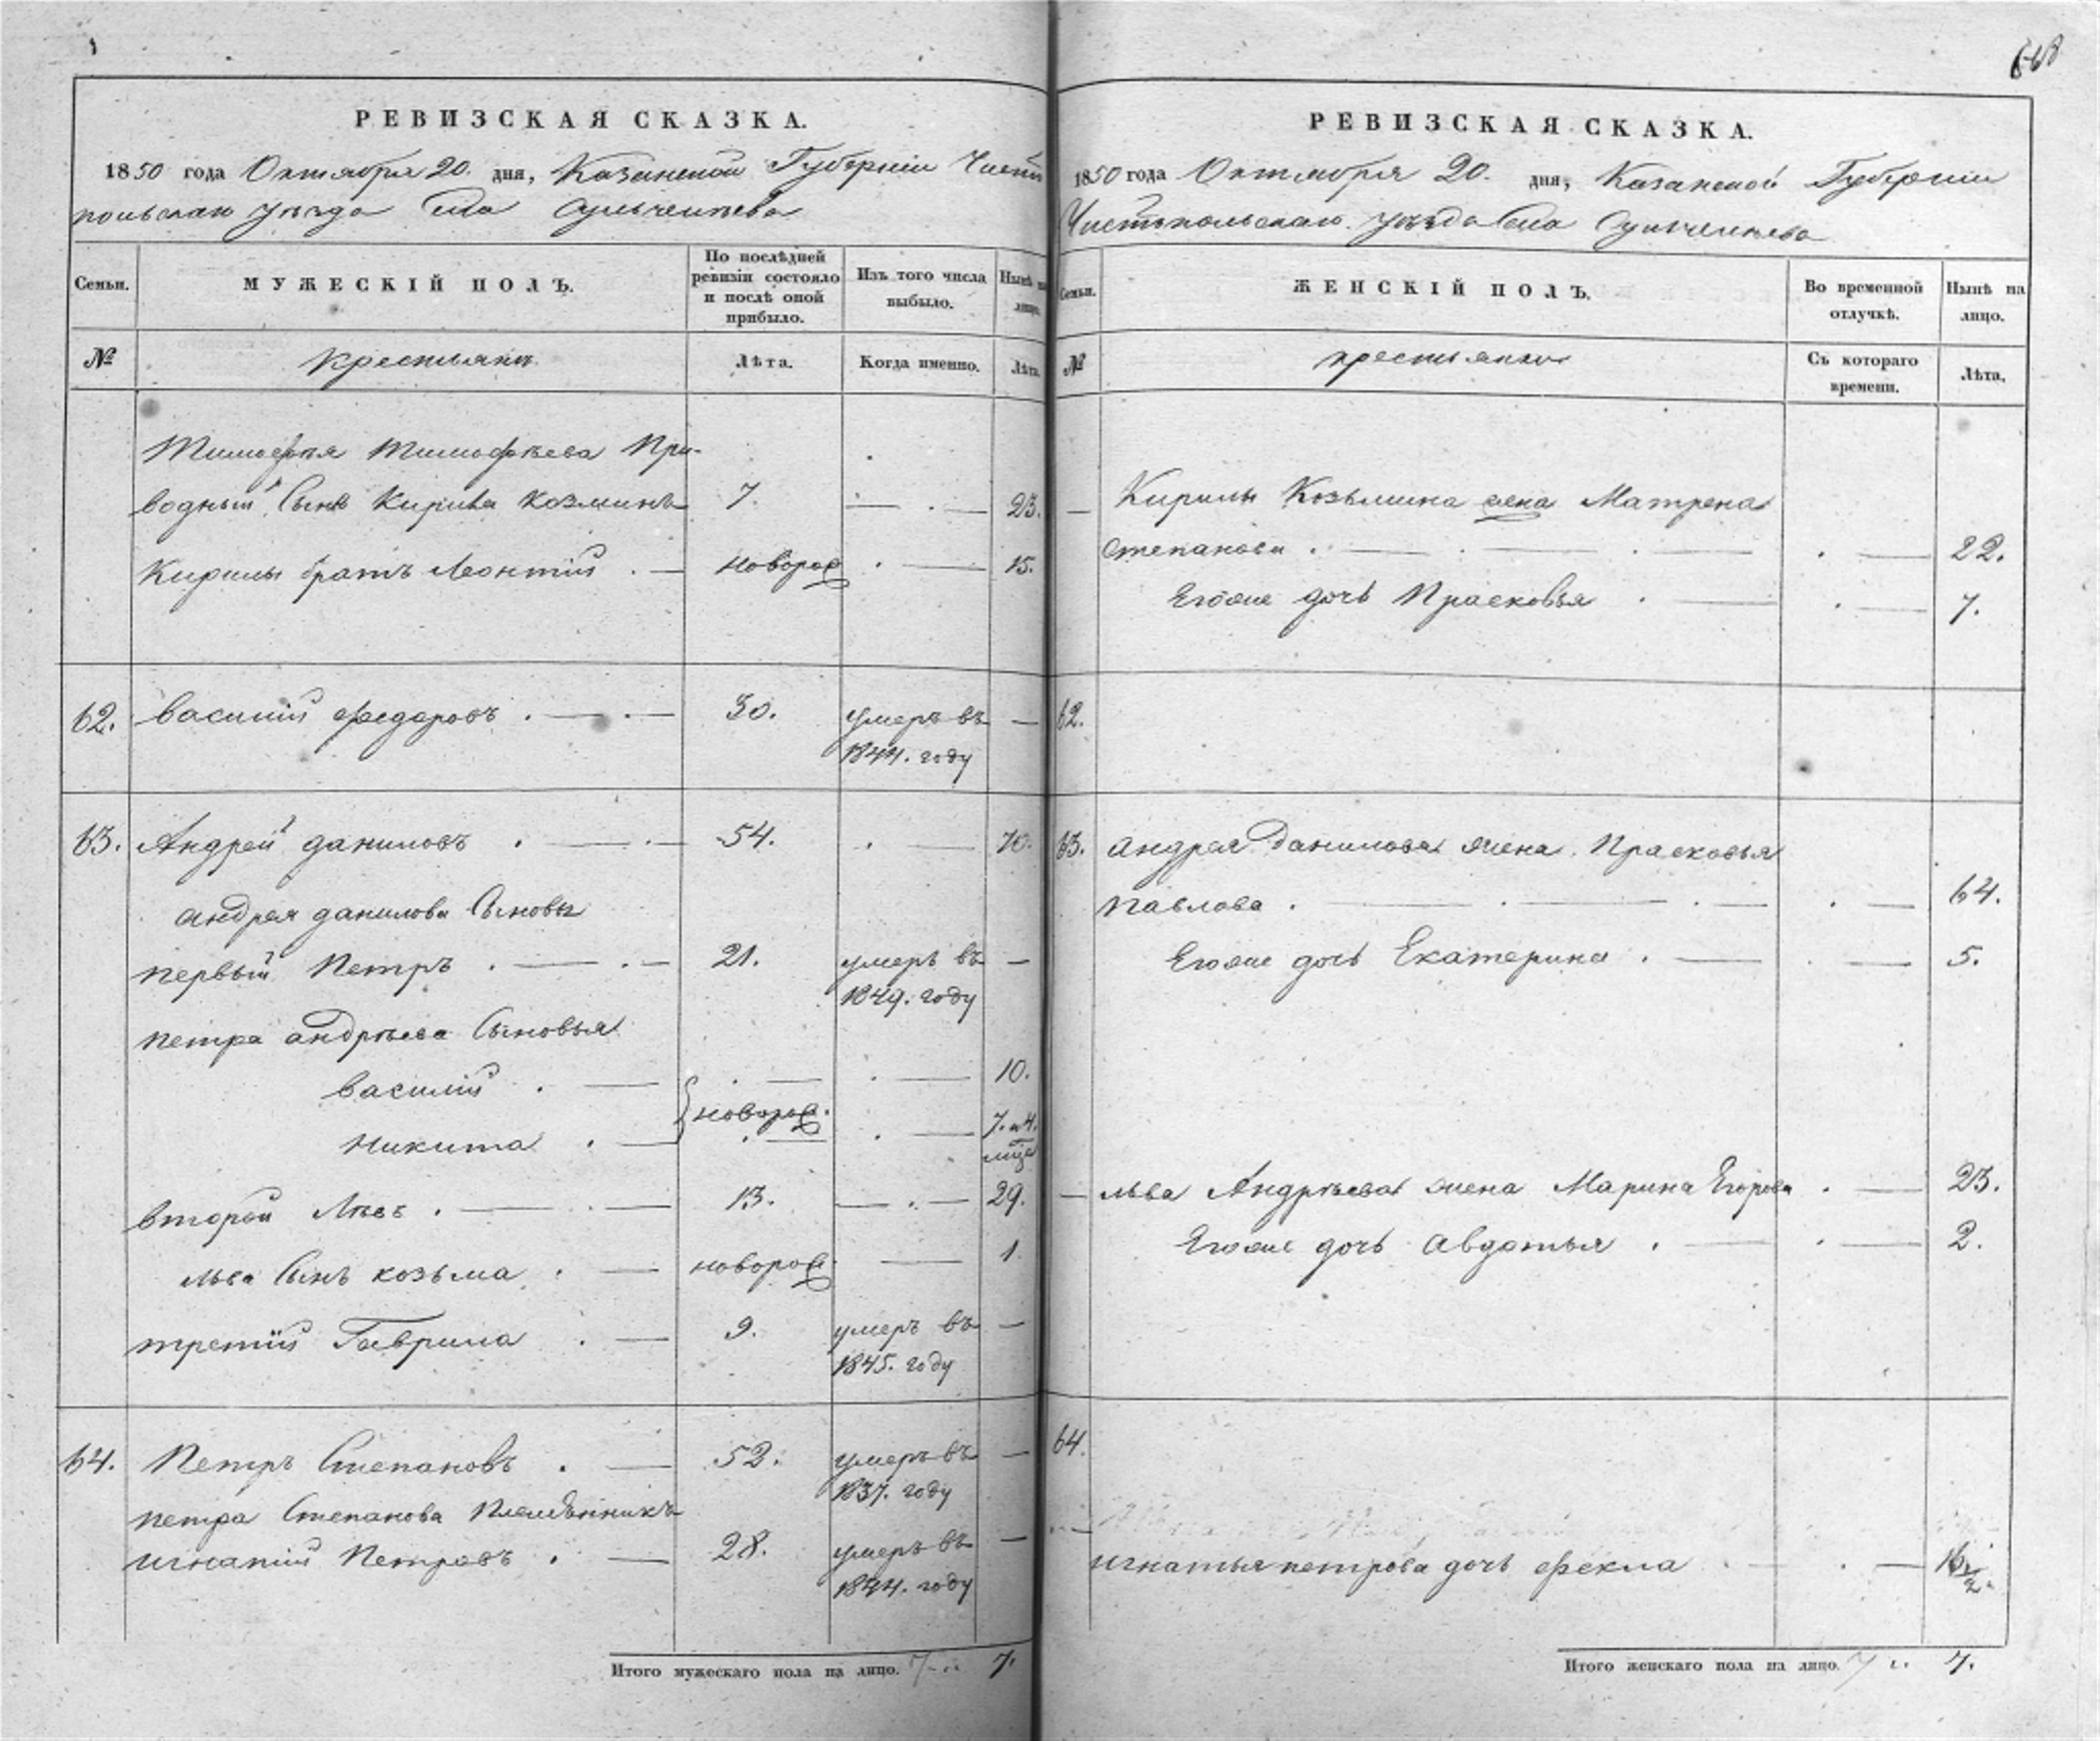 РЕВИЗСКАЯ СКАЗКА.
1850 года Октября 20. дня, Казанской Губерніи Чисто
польскаго уѣзда Села Сульчелѣева
Семьи. МУЖЕСКІЙ ПОЛЪ. По послѣдней ревизіи состояло и послѣ оной прибыло. Изъ того числа выбыло. Нынѣ на лицо.
№ Крестьянъ Лѣта. Когда именно. Лѣта.
Тимофѣя Тимофѣева При-
водный Сынъ Кирила Козминъ 7. 23.
Кирилы братъ Леонтій новорож 15.
62. Василій Федоровъ 30. умеръ въ
1844. году
63. Андрей даниловъ 54. 70.
андрея данилова Сыновья
первый Петръ 21. умеръ въ
1849. году
петра андрѣева Сыновья
василій 10.
новорож.
никита 7. и 4.
второй Левъ 13. 29.
льва Сынъ козьма новорож. 1.
третій Гаврила 9. умеръ въ
1845. году
64. Петръ Степановъ 52. умеръ въ
1837. году
петра Степанова Племянникъ
игнатій Петровъ 28. умеръ въ
1844. году
Итого мужескаго пола на лицо. 7.
РЕВИЗСКАЯ СКАЗКА.
1850 года Октября 20. дня, Казанской Губерніи
Чистопольскаго уѣзда Села Сульчелѣева
Семьи. ЖЕНСКІЙ ПОЛЪ. Во временной отлучкѣ. Нынѣ на лицо.
№ крестьянки Съ котораго времени. Лѣта.
Кирилы Козьмина жена Матрена
степанова 22.
Егоже дочь Прасковья 7.
62.
63. андрея Данилова жена Прасковья
павлова 64.
Егоже дочь Екатерина 5.
льва Андрѣева жена Марина Егорова 23.
Егоже дочь Авдотья 2.
64.
игнатья петрова дочь фекла
Итого женскаго пола на лицо. 7.